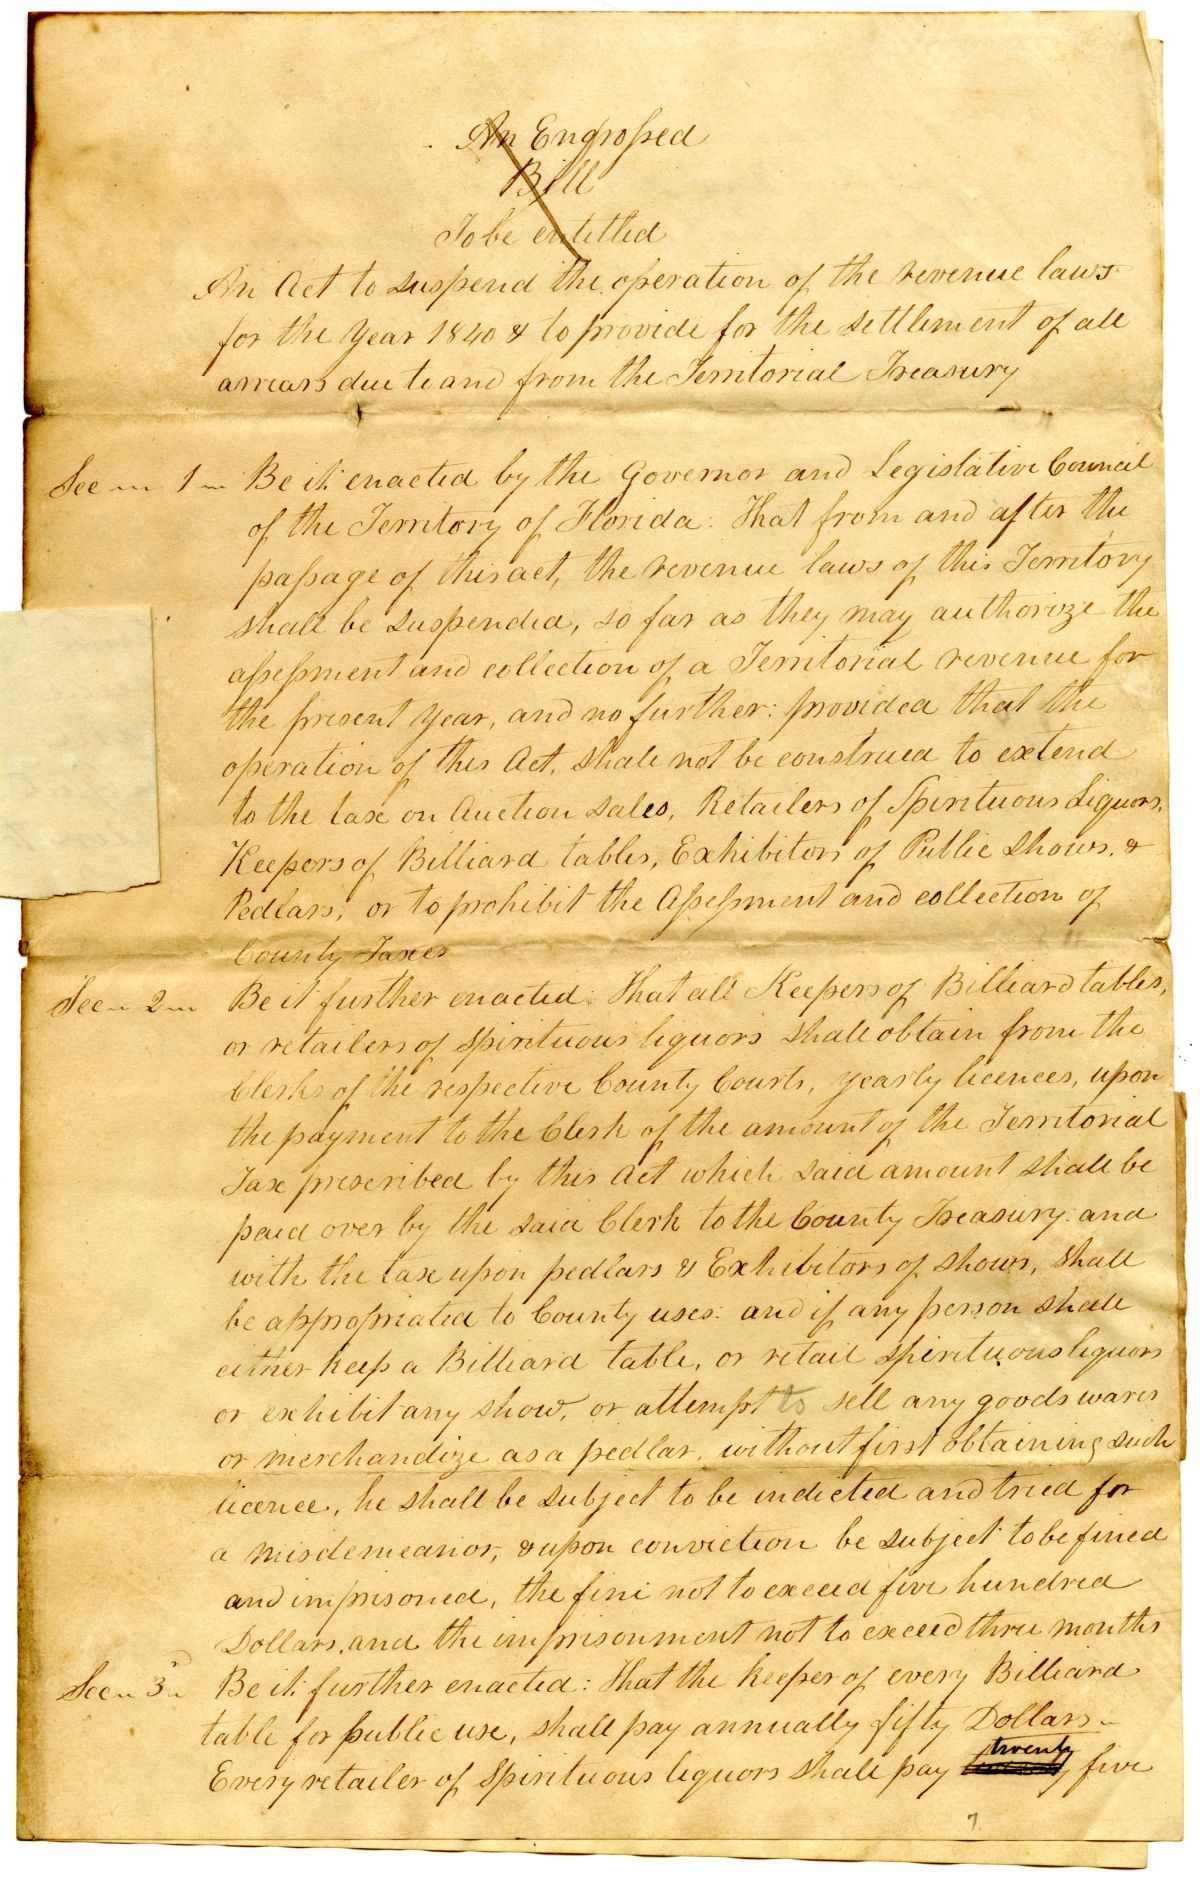 An Engrossed
Bill
To be entitled
An Act to suspend the operation of the revenue laws
for the Year 1840 & to provide for the settlement of all
arrears due to and from the Territorial Treasury
Sec 1 Be it enacted by the Governor and Legislative Council
of the Territory of Florida: That from and after the
passage of this act, the revenue laws of this Territory
shall be suspended, so far as they may authorize the
assessment and collection of a Territorial revenue for
the present year, and no further: provided that the
operation of this Act, shall not be construed to extend
to the tax on Auction sales, Retailers of Spirituous Liquors,
Keepers of Billiard tables, Exhibitors of Public Shows, &
Pedlars, or to prohibit the Assessment and collection of
County Taxes
Sec 2 Be it further enacted: That all Keepers of Billiard tables,
or retailers of spirituous liquors shall obtain from the
Clerks of the respective County Courts, yearly licences, upon
the payment to the Clerk of the amount of the Territorial
Tax prescribed by this Act which said amount shall be
paid over by the said Clerk to the County Treasury: and
with the tax upon pedlars & Exhibitors of shows, shall
be appropriated to County uses: and if any person shall
either keep a Billiard table, or retail spirituous liquors
or exhibit any show, or attempt to sell any goods wares
or merchandize as a pedlar, without first obtaining such
licence, he shall be subject to be indicted and tried for
a misdemeanor, & upon conviction be subject to be fined
and imprisoned, the fine not to exceed five hundred
Dollars, and the imprisonment not to exceed three months
Sec 3 Be it further enacted: That the keeper of every Billiard
table for public use, shall pay annually fifty Dollars
Every retailer of spirituous liquors shall pay twenty five
7